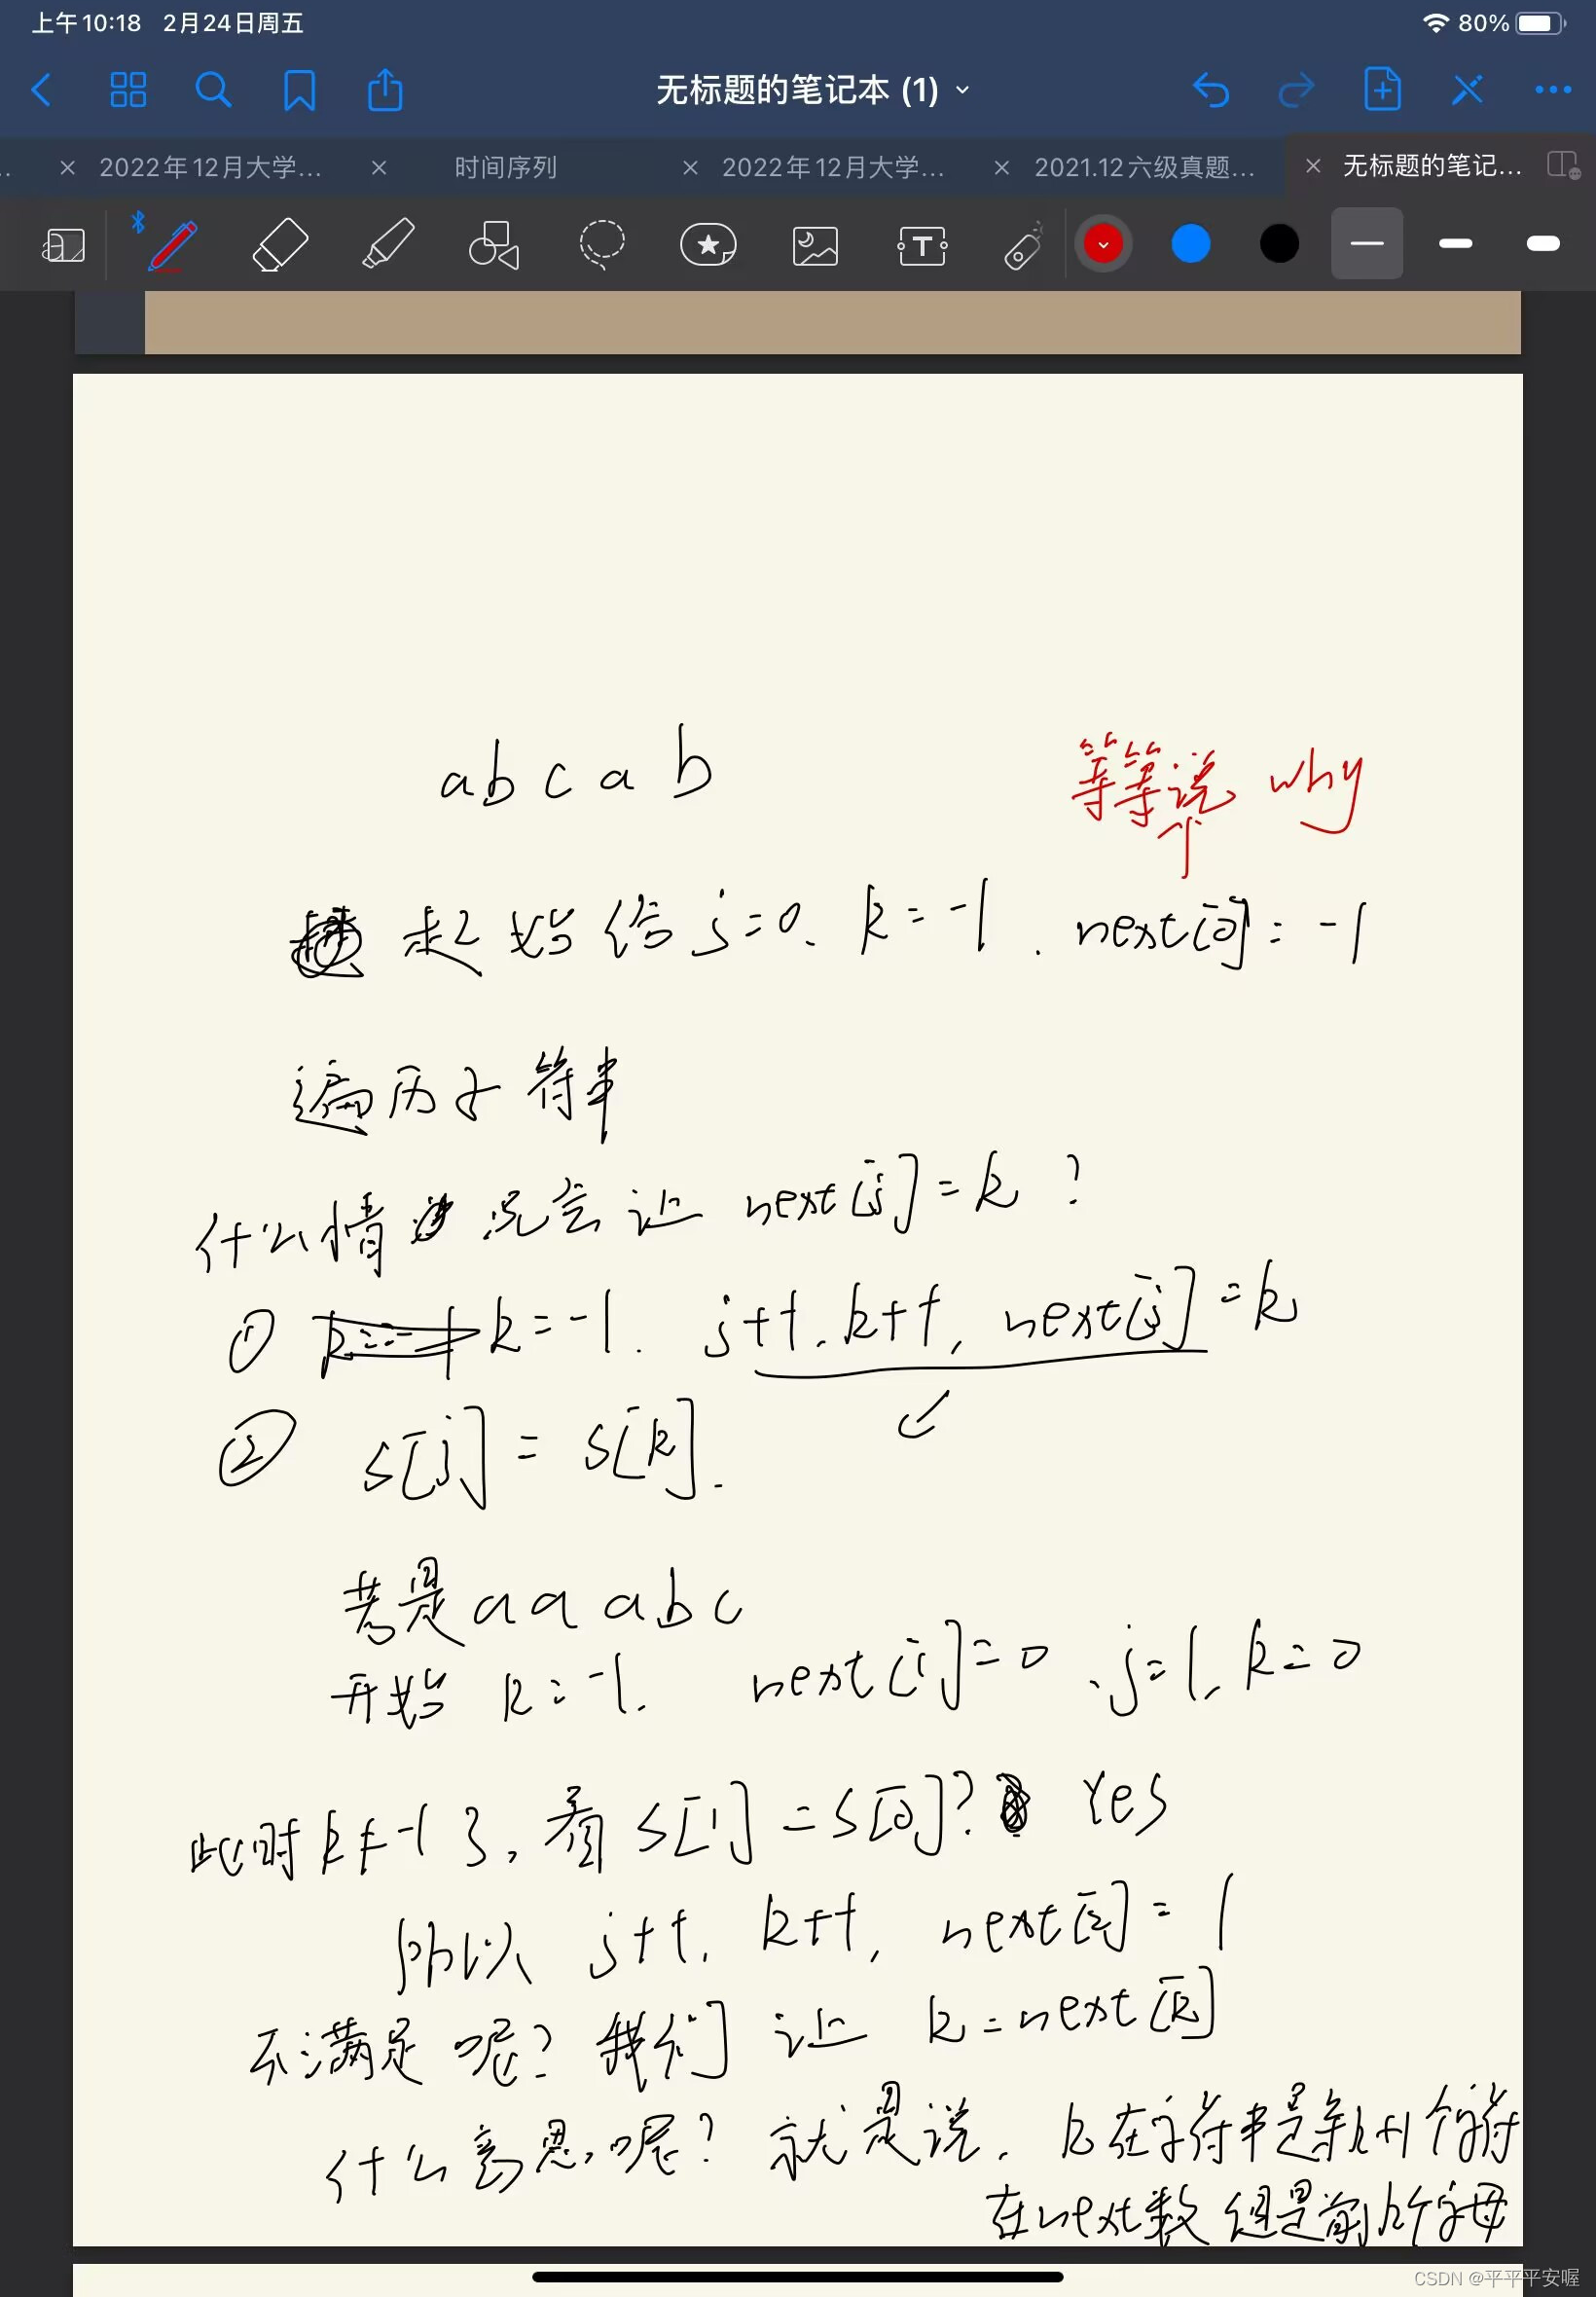 上午10:18 2月24日周五
80%
无标题的笔记本 (1)
2022年12月大学...
时间序列
2022年12月大学...
2021.12六级真题...
无标题的笔记...
a b c a b
等等说 why
起始给 j=0. k=-1. next[0]=-1
遍历字符串
什么情况会让 next[j]=k ?
① k=-1. j++. k++, next[j]=k
② s[j] = s[k].
若是 a a a b c
开始 k=-1. next[1]=0 . j=1, k=0
此时 k≠-1了, 看 s[1] = s[0]? Yes
所以 j++, k++, next[2]=1
不满足呢? 我们让 k=next[k]
什么意思呢? 就是说. k在字符串是第k+1个字符
在next数组是前k个字母
CSDN @平平平安喔